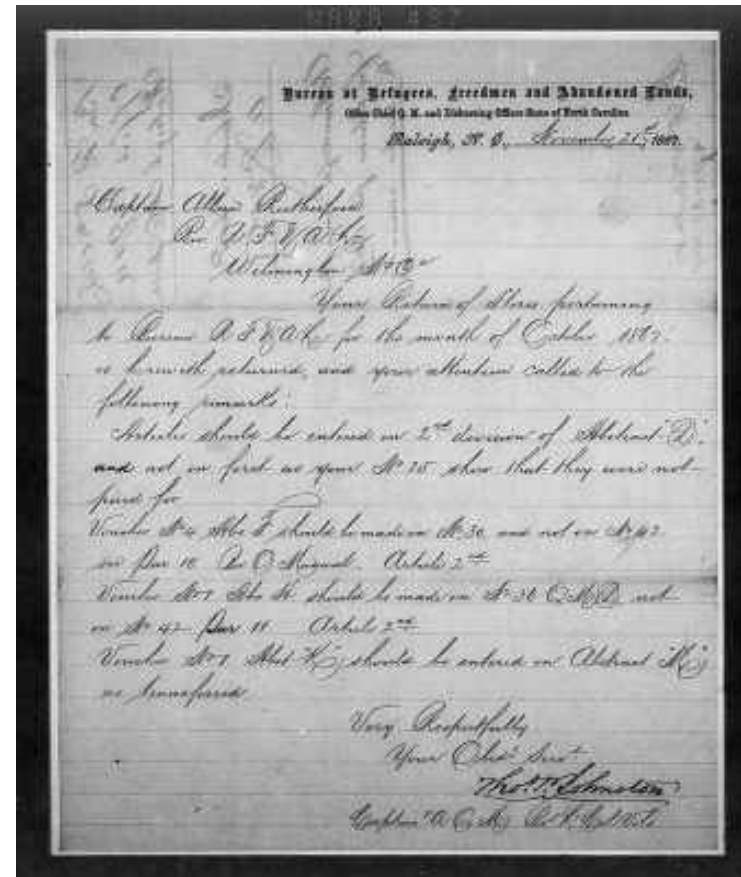 Bureau of Refugees, Freedmen and Abandoned Lands,
Office Chief Q. M. and Disbursing Officer State of North Carolina
Raleigh, N. C., November 21st, 1867.
Captain Allan Rutherford
Bu R F & A L
Wilmington N C
Your Return of Stores pertaining
to Bureau R F & A L for the month of October 1867
is herewith returned, and your attention called to the
following remarks:
Articles should be entered on 2nd division of Abstract "D"
and not on first as your No 25 show that they were not
paid for
Voucher No 4 Abs F should be made on No 30 and not on No 42
Par 10 Manual. Article 2nd
Voucher No 1 Abs K should be made on No 30 Q M D not
on No 42 Par 10 Article 2nd
Voucher No 1 Abst "K" should be entered on Abstract "M"
as transferred
Very Respectfully
Your Obdt Servt
Thos. P. Johnston
Captain & A Q M